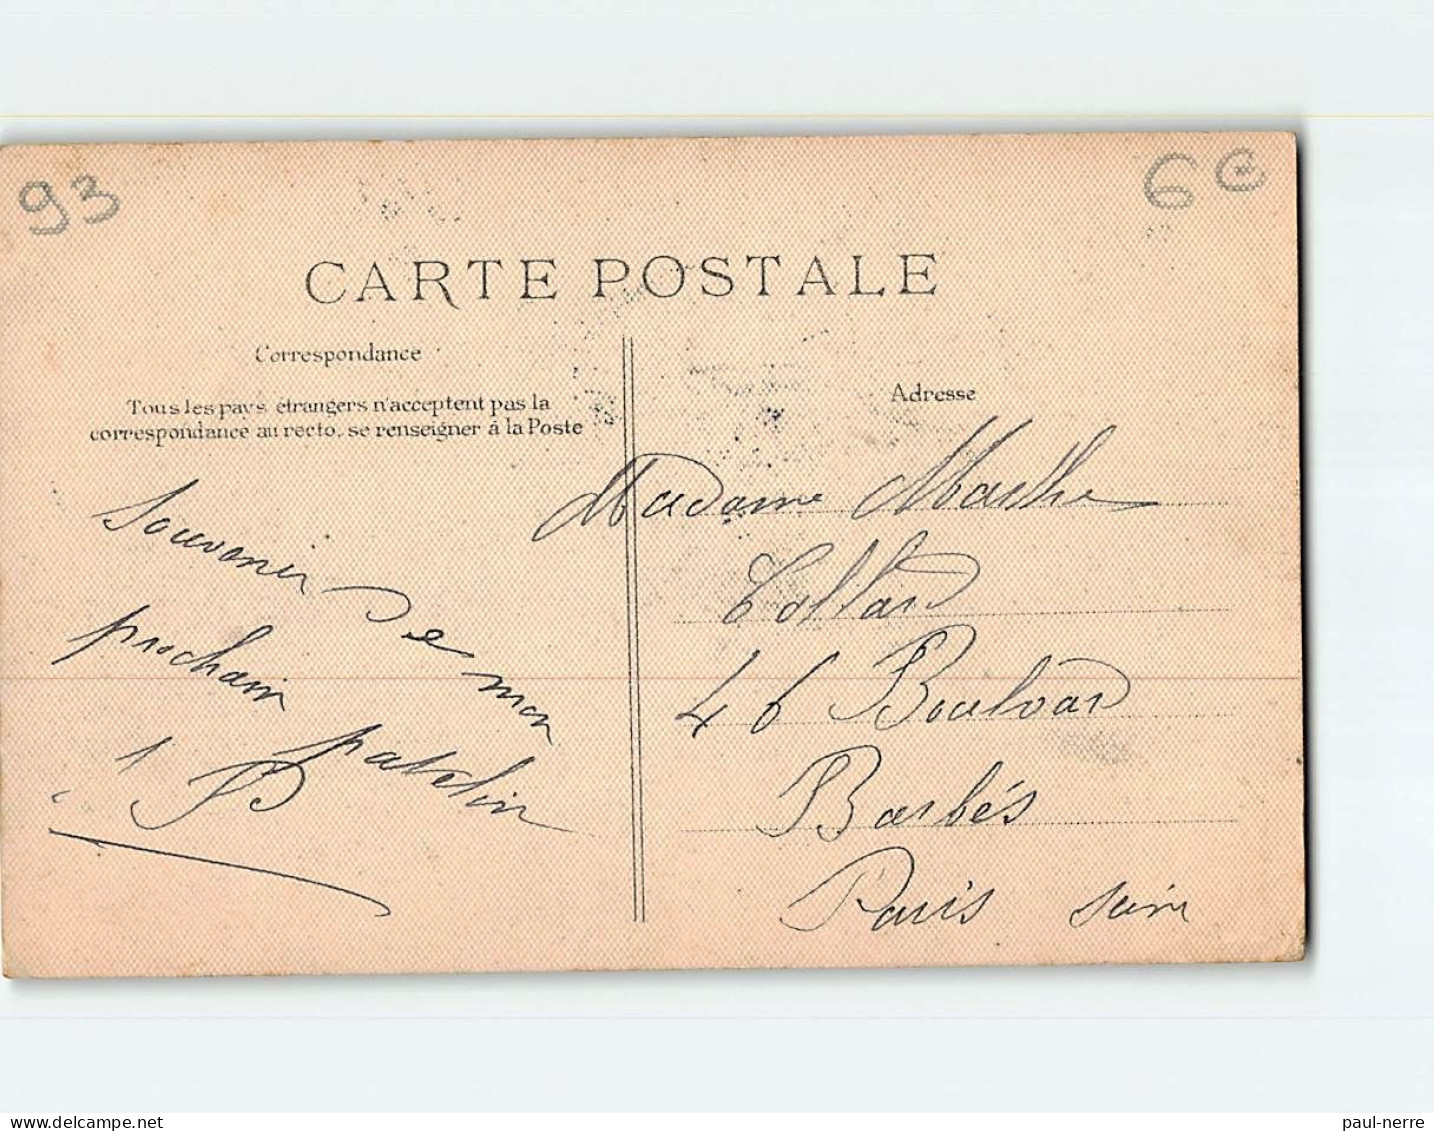 93
6€
CARTE POSTALE
Correspondance
Tous les pays étrangers n'acceptent pas la
correspondance au recto, se renseigner à la Poste
Adresse
Souvenir de mon
prochain patelin
P
Madame Marthe
Collard
46 Boulvard
Barbés
Paris Seine
www.delcampe.net
paul-nerre